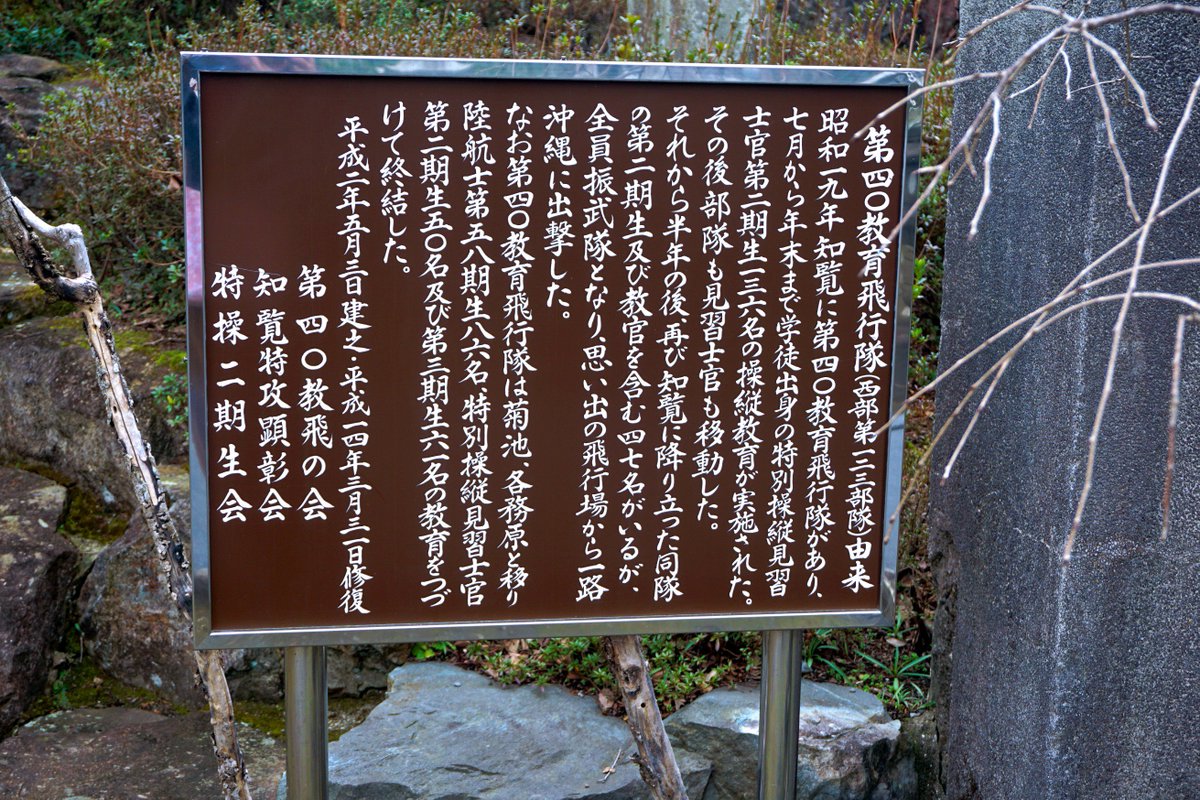 第四〇教育飛行隊(西部第一二三部隊)由来
昭和一九年知覧に第四〇教育飛行隊があり、
七月から年末まで学徒出身の特別操縦見習
士官第二期生一三六名の操縦教育が実施された。
その後部隊も見習士官も移動した。
それから半年の後、再び知覧に降り立った同隊
の第二期生及び教官を含む四七名がいるが、
全員振武隊となり、思い出の飛行場から一路
沖縄に出撃した。
なお第四〇教育飛行隊は菊池、各務原と移り
陸航士第五八期生八六名、特別操縦見習士官
第二期生五〇名及び第三期生六一名の教育をつづ
けて終結した。
平成二年五月三日建之・平成一四年三月三一日修復
第四〇教飛の会
知覧特攻顕彰会
特操二期生会